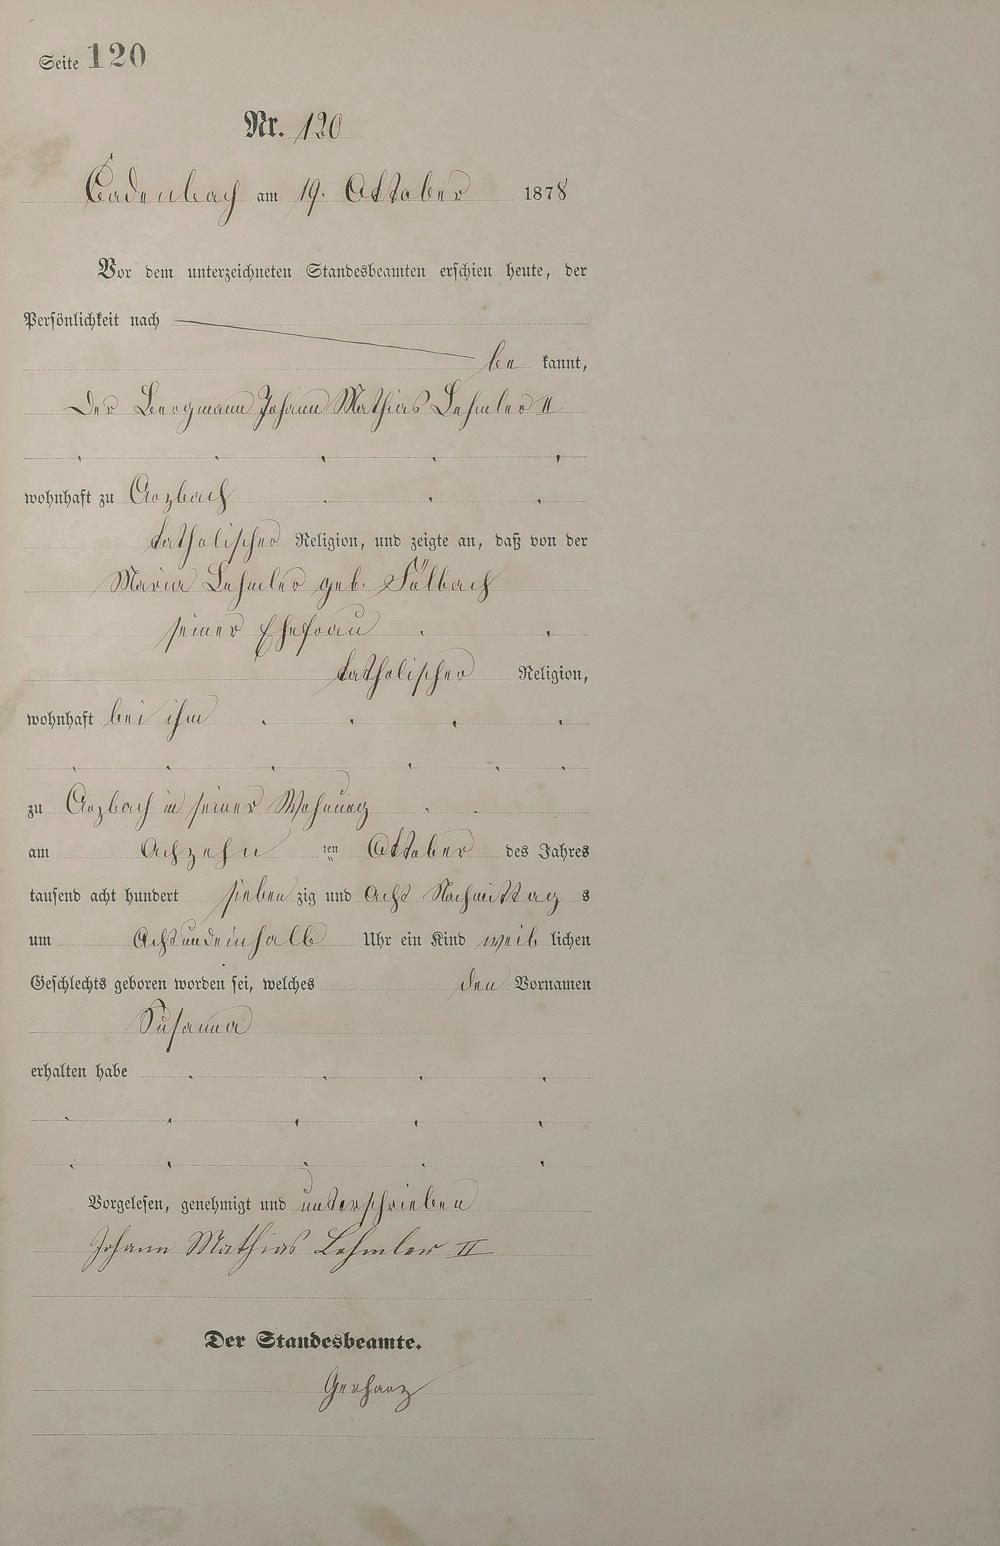 Seite 120
Nr. 120
Cadenbach am 19. Oktober 1878
Vor dem unterzeichneten Standesbeamten erschien heute, der
Persönlichkeit nach
be kannt,
Der Bergmann Johann Mathias Lehmler II
wohnhaft zu Arzbach
katholischer Religion, und zeigte an, daß von der
Maria Lehmler geb. Sülbach
seiner Ehefrau
katholischer Religion,
wohnhaft bei ihm
zu Arzbach in seiner Wohnung
am Achzehn ten Oktober des Jahres
tausend acht hundert sieben zig und Acht Nachmittag s
um Acht und einhalb Uhr ein Kind weib lichen
Geschlechts geboren worden sei, welches den Vornamen
Susanna
erhalten habe
Vorgelesen, genehmigt und unterschrieben
Johann Mathias Lehmler II
Der Standesbeamte.
Gerharz